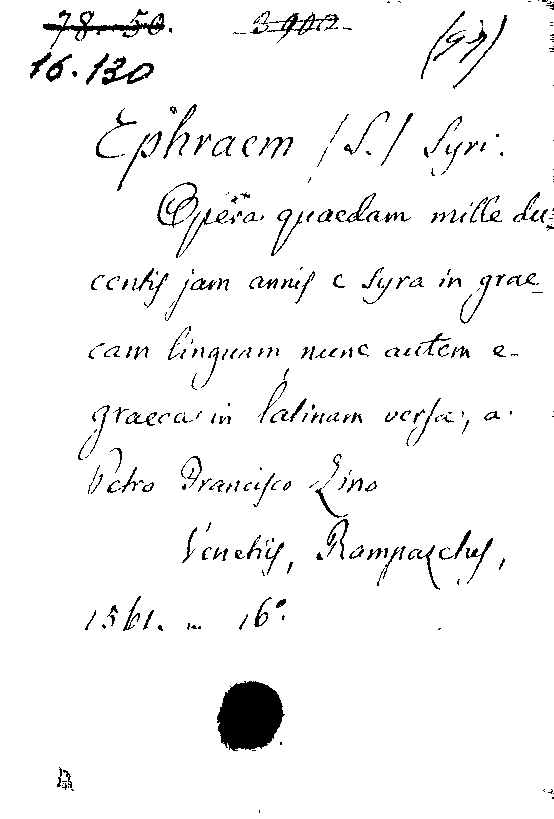 78-50. 3900 (97)
16.130
Ephraem (S.) Syri.
Opera quaedam mille du-
centis jam annis e syra in grae-
cam linguam, nunc autem e
graeca in latinam versa, a
Petro Francisco Zino
Venetiis, Rampazetus,
1561. _ 16°.